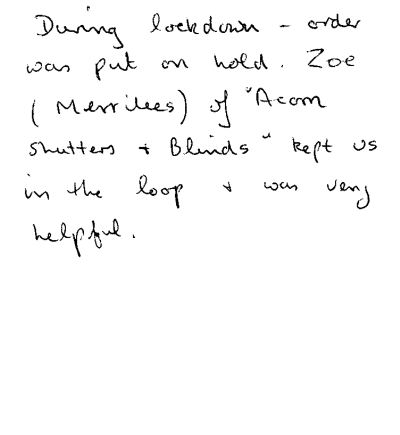 During lockdown - order
was put on hold. Zoe
(Merrilees) of "Acorn
Shutters + Blinds" kept us
in the loop + was very
helpful.